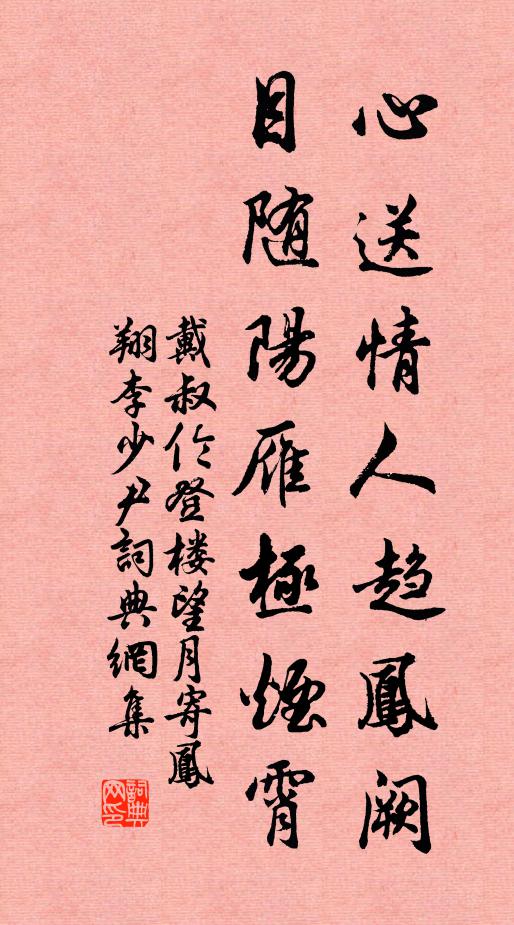 心送情人趋鳳阙
目随陽雁極煙霄
戴叔伦登楼望月寄鳳
翔李少尹詞典網集
詞典网印